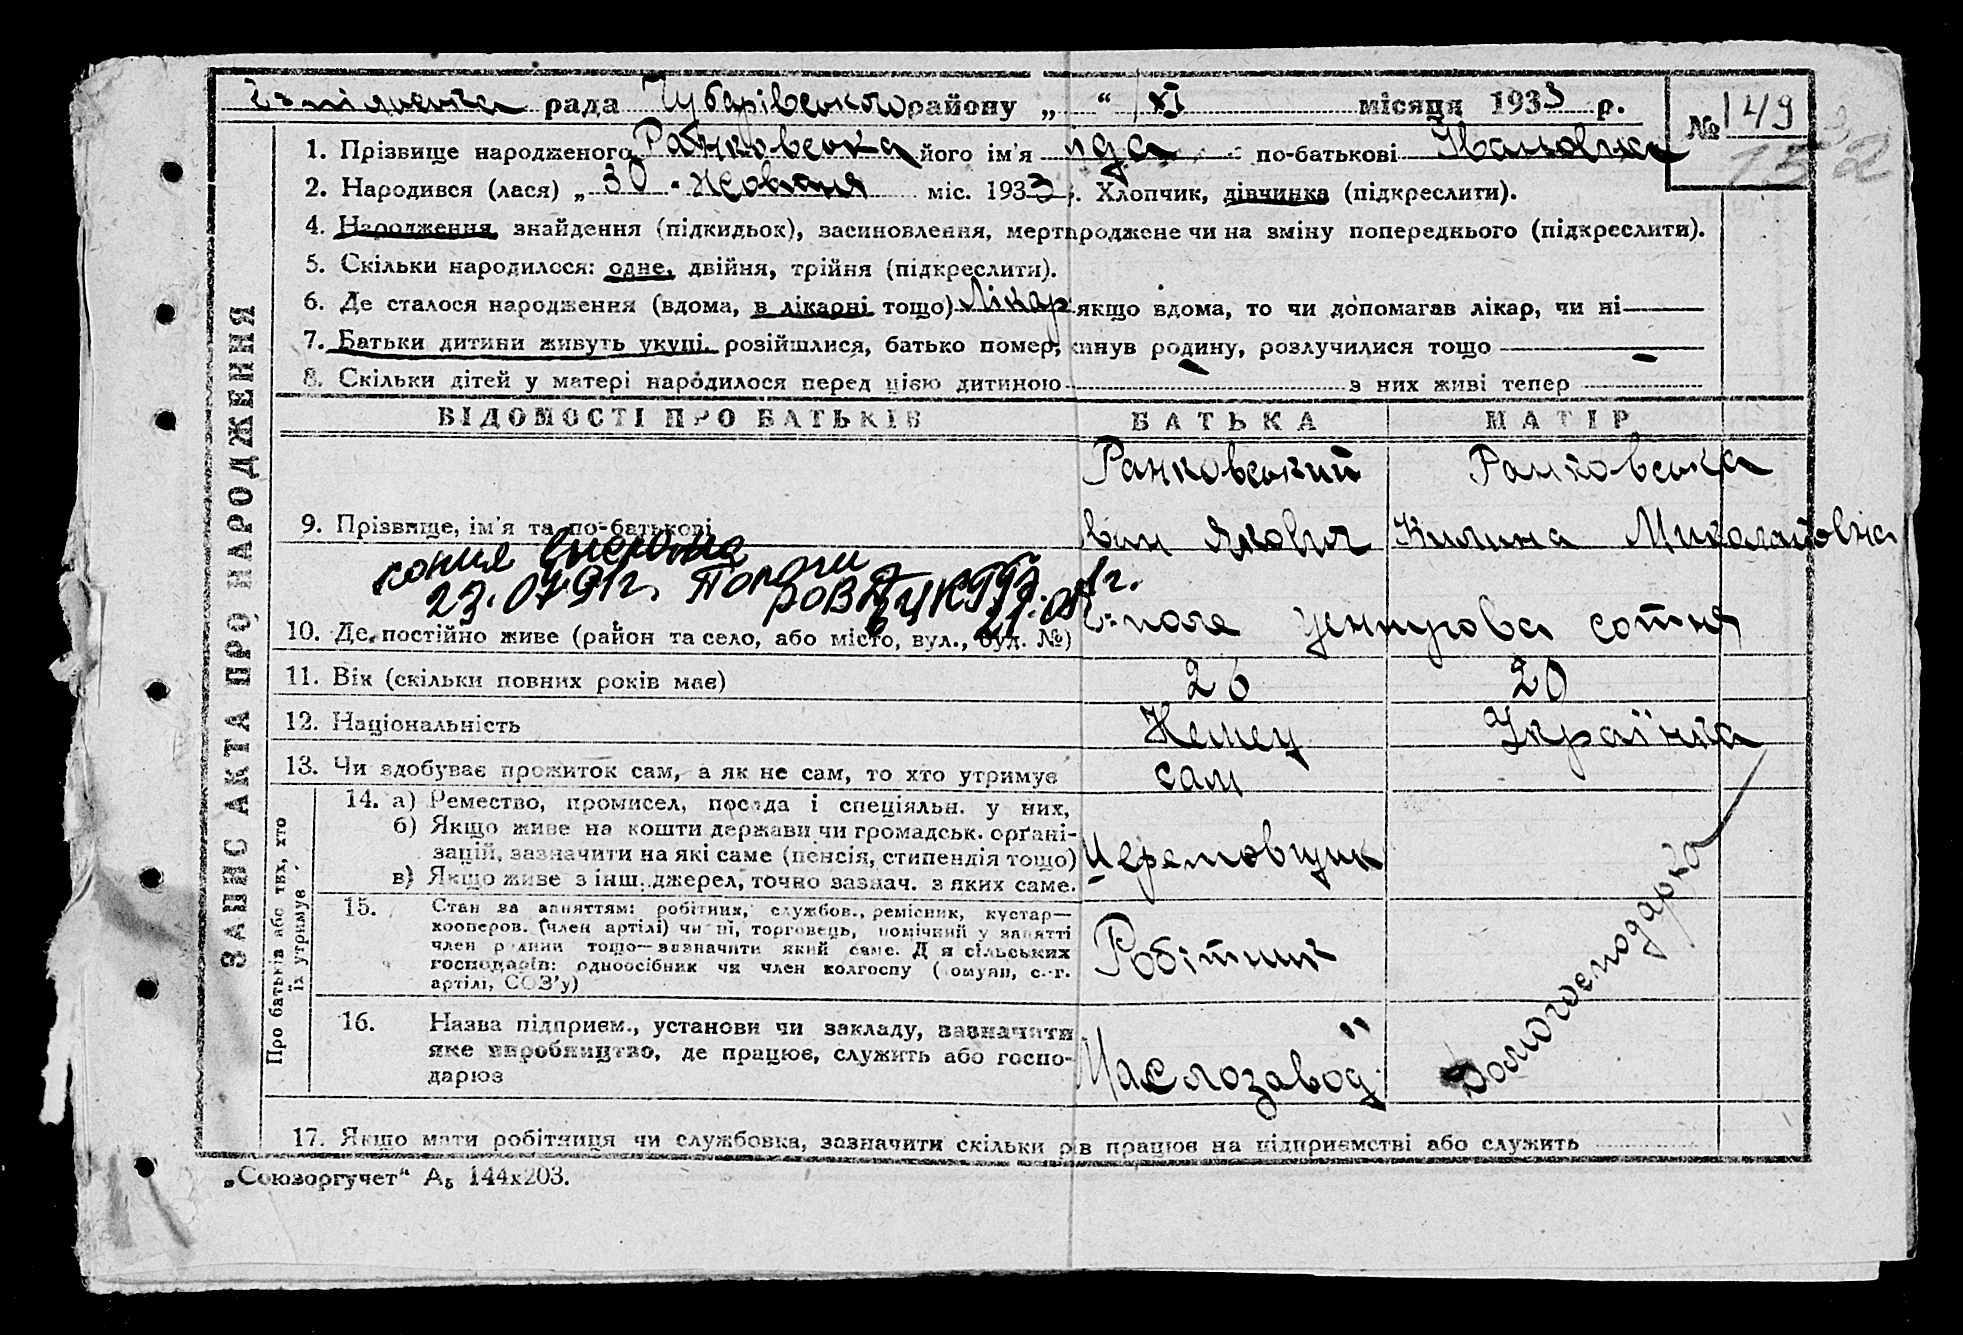 Г-пільська рада Чубарівського району „ “ XI місяця 1933 р. № 149
152
ЗАПИС АКТА ПРО НАРОДЖЕННЯ
1. Прізвище народженого Ранковська його ім'я Іда по-батькові Івановна
2. Народився (лася) „ 30 " Жовтня міс. 1933 р. Хлопчик, дівчинка (підкреслити).
4. Народження, знайдення (підкидьок), засиновлення, мертвороджене чи на зміну попереднього (підкреслити).
5. Скільки народилося: одне, двійня, трійня (підкреслити).
6. Де сталося народження (вдома, в лікарні тощо) Лікар якщо вдома, то чи допомагав лікар, чи ні —
7. Батьки дитини живуть укупі, розійшлися, батько помер, кинув родину, розлучилися тощо —
8. Скільки дітей у матері народилося перед цією дитиною - з них живі тепер -
ВІДОМОСТІ ПРО БАТЬКІВ БАТЬКА МАТІР
Ранковський Ранковська
9. Прізвище, ім'я та по-батькові Іван Якович Килина Миколаївна
копия
23.07.91г. Пологи
РОВД
10. Де постійно живе (район та село, або місто, вул., буд. №) Г-поле Центрова сотня
11. Вік (скільки повних років має) 26 20
12. Національність Немец Українка
13. Чи здобуває прожиток сам, а як не сам, то хто утримує сам
Про батьків або тих, хто їх утримує
14. а) Ремество, промисел, посада і спеціяльн. у них,
б) Якщо живе на кошти держави чи громадськ. орґані-
зацій, зазначити на які саме (пенсія, стипендія тощо)
в) Якщо живе з інш. джерел, точно зазнач. з яких саме.
Череповщик
15. Стан за заняттям: робітник, службов., ремісник, кустар—
кооперов. (член артілі) чи ні, торговець, помічний у занятті
член родини тощо—зазначити який саме. Для сільських
господарів: одноосібник чи член колгоспу (комуни, с.-г.
артілі, СОЗ'у)
Робітник
16. Назва підприєм., установи чи закладу, зазначити
яке виробництво, де працює, служить або госпо-
дарює
Маслозавод
Домогосподарка
17. Якщо мати робітниця чи службовка, зазначити скільки рів працює на підприємстві або служить
„Союзоргучет“ А₅ 144х203.